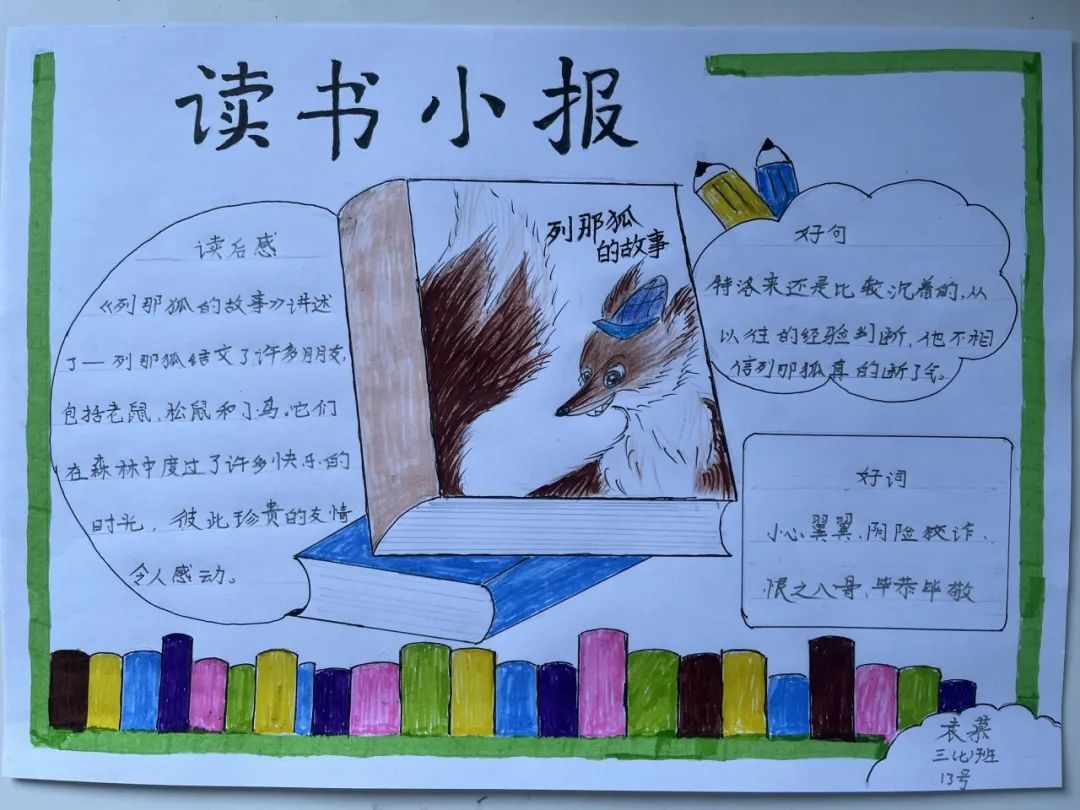 读书小报
列那狐
的故事
读后感
《列那狐的故事》讲述
了一列那狐结交了许多朋友,
包括老鼠、松鼠和小鸟。它们
在森林中度过了许多快乐的
时光，彼此珍贵的友情
令人感动。
好句
特洛来还是比较沉着的,从
以往的经验判断,他不相
信列那狐真的断了气。
好词
小心翼翼、阴险狡诈、
恨之入骨、毕恭毕敬
三(七)班
13号